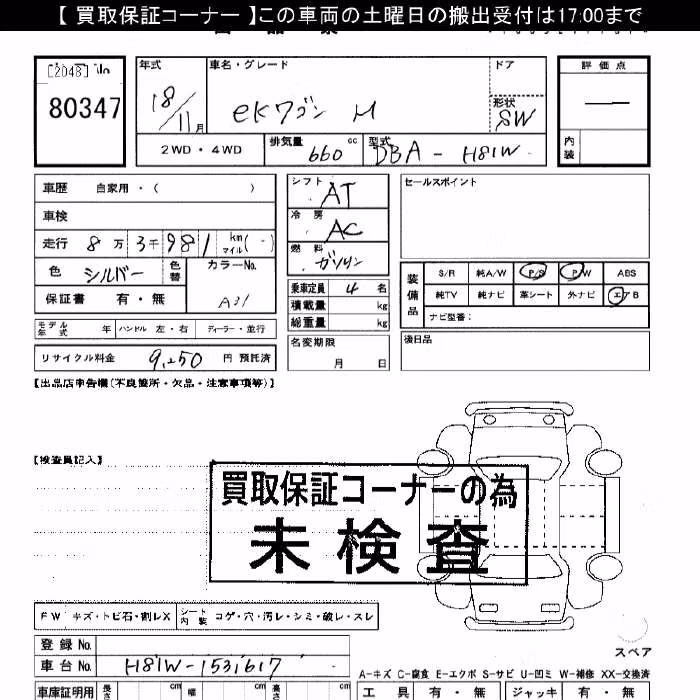 【 買取保証コーナー 】この車両の土曜日の搬出受付は17:00まで
[2048] No
80347
年式 車名・グレード ドア 評価点
18/11月 eKワゴン M 形状 SW
2WD・4WD 排気量 660 cc 型式 DBA - H81W 内装
車歴 自家用・( )
車検
走行 8万3千981 km マイル( - )
色 シルバー 色替 カラーNo. A31
保証書 有・無
モデル年式 年 ハンドル 左・右 ディーラー・並行
リサイクル料金 9,250 円 預託済
シフト AT
冷房 AC
燃料 ガソリン
乗車定員 4 名
積載量 kg
総重量 kg
名変期限 月 日
セールスポイント
装備品 S/R 純A/W P/S P/W ABS
純TV 純ナビ 革シート 外ナビ エアB
ナビ型番:
後日品
【出品店申告欄(不良箇所・欠品・注意事項等)】
【検査員記入】
買取保証コーナーの為
未検査
FW キズ・トビ石・割レX シート内装 コゲ・穴・汚レ・シミ・破レ・スレ
登録No.
車台No. H81W-1531617
スペア
A-キズ C-腐食 E-エクボ S-サビ U-凹ミ W-補修 XX-交換済
車庫証明用 長さ cm 幅 cm 高さ cm 工具 有・無 ジャッキ 有・無